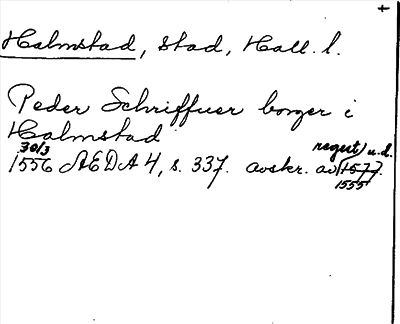 +
Halmstad, stad, Hall. l.
Peder Schriffuer borger i
Halmstad
30/3 regest) u.d.
1556 AEDA 4, s. 337. avskr. av 1577.
1555